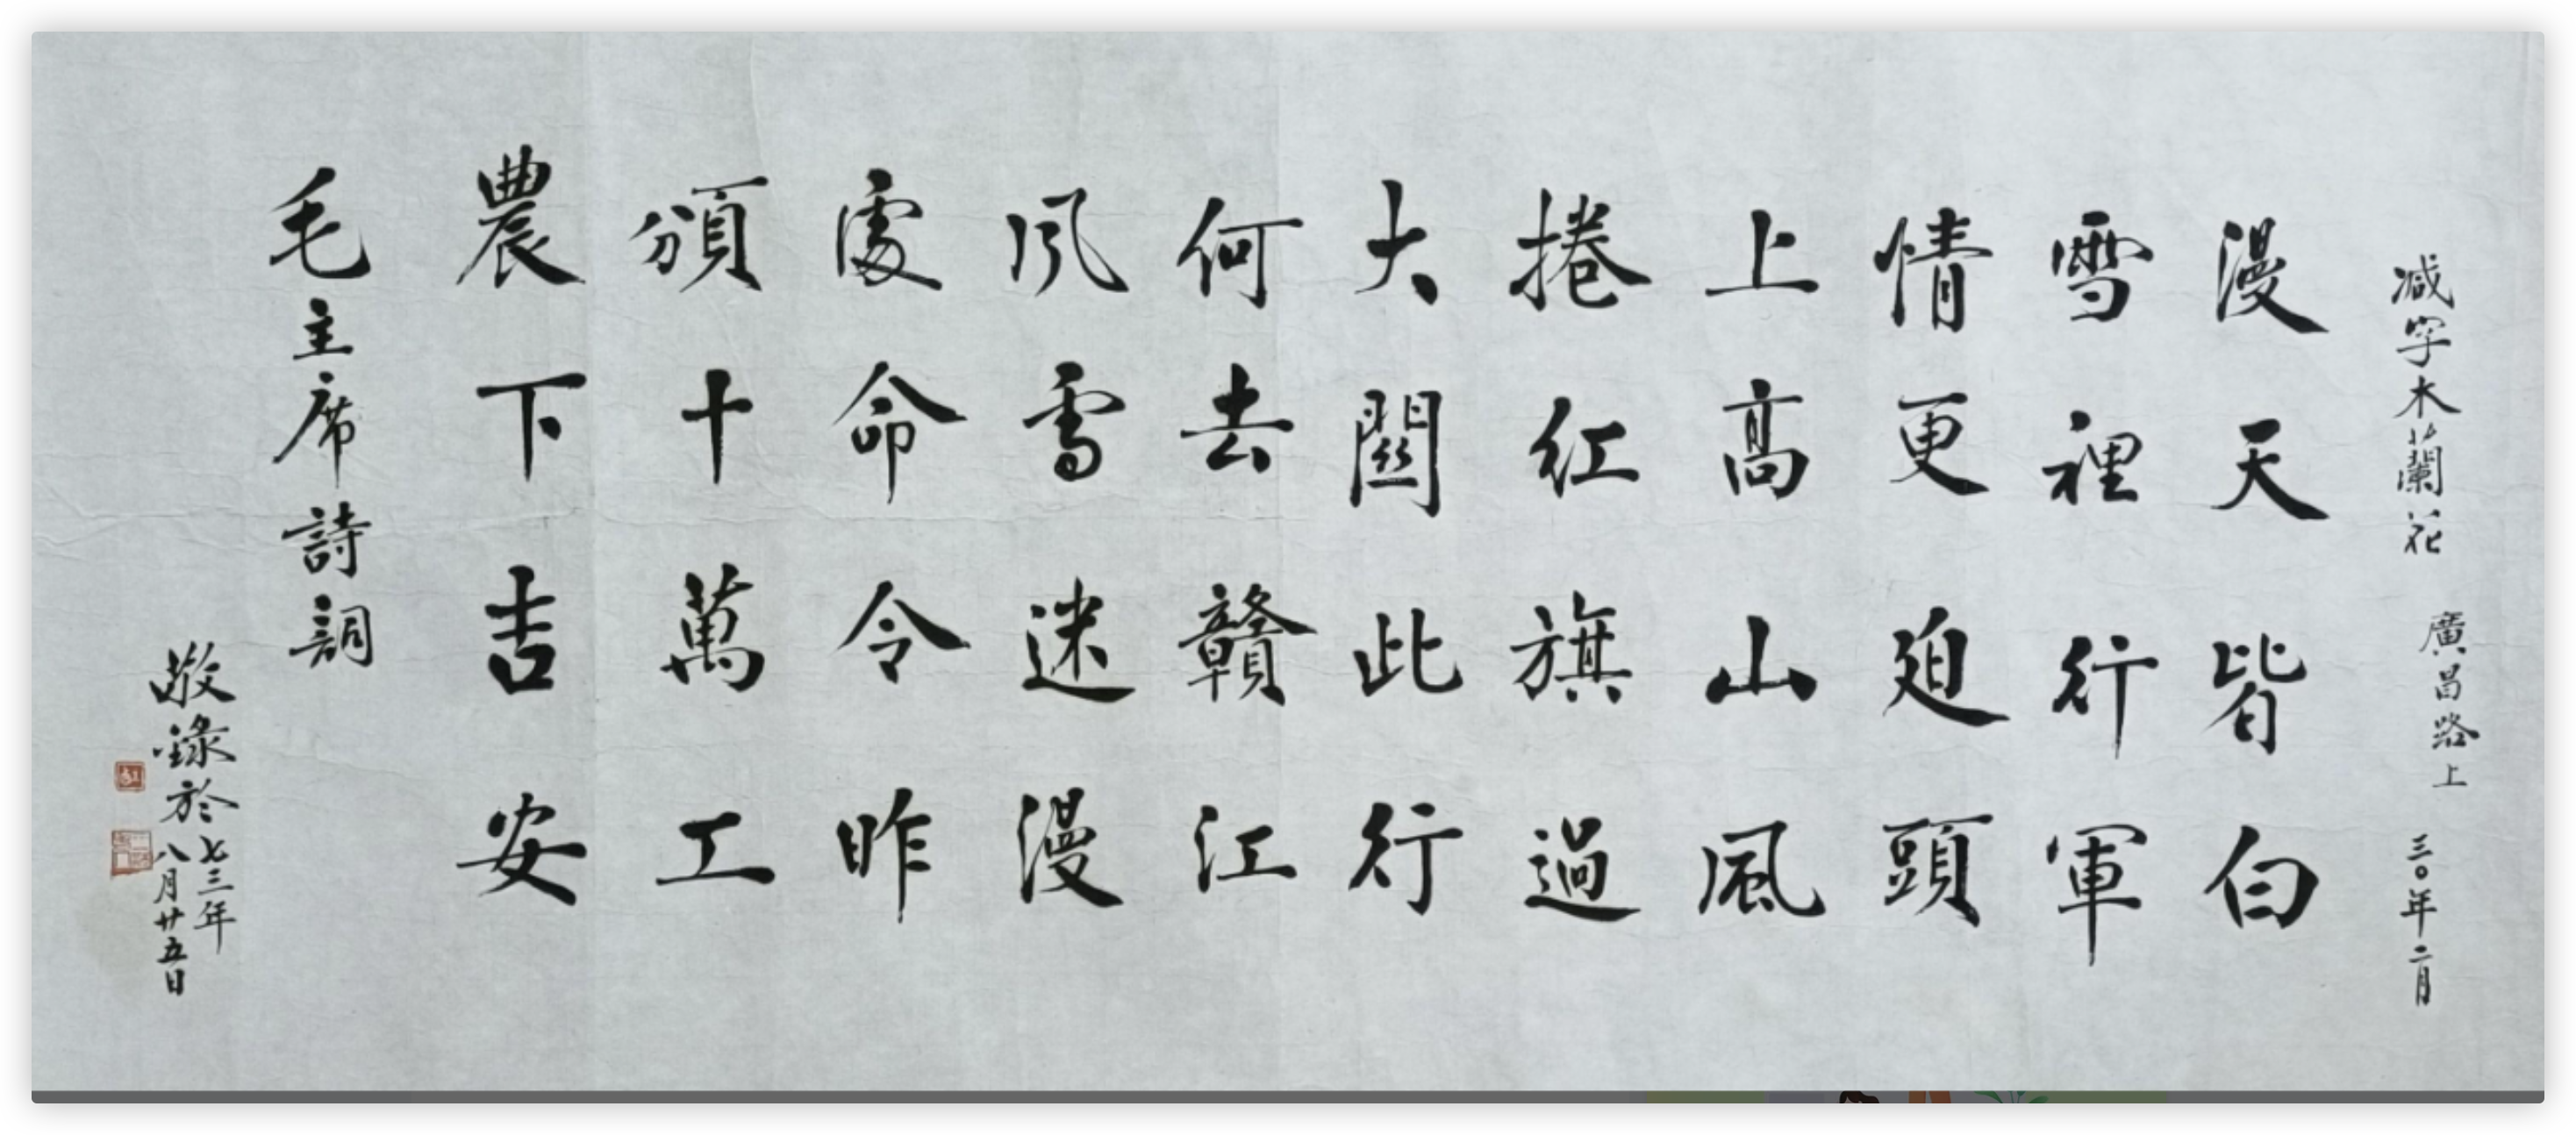 減字木蘭花 廣昌路上 三〇年二月
漫天皆白
雪裡行軍
情更廹頭
上高山風
捲紅旗過
大關此行
何去贛江
風雪迷漫
處命令昨
頒十萬工
農下吉安
毛主席詩詞
敬錄於七三年
八月廿五日